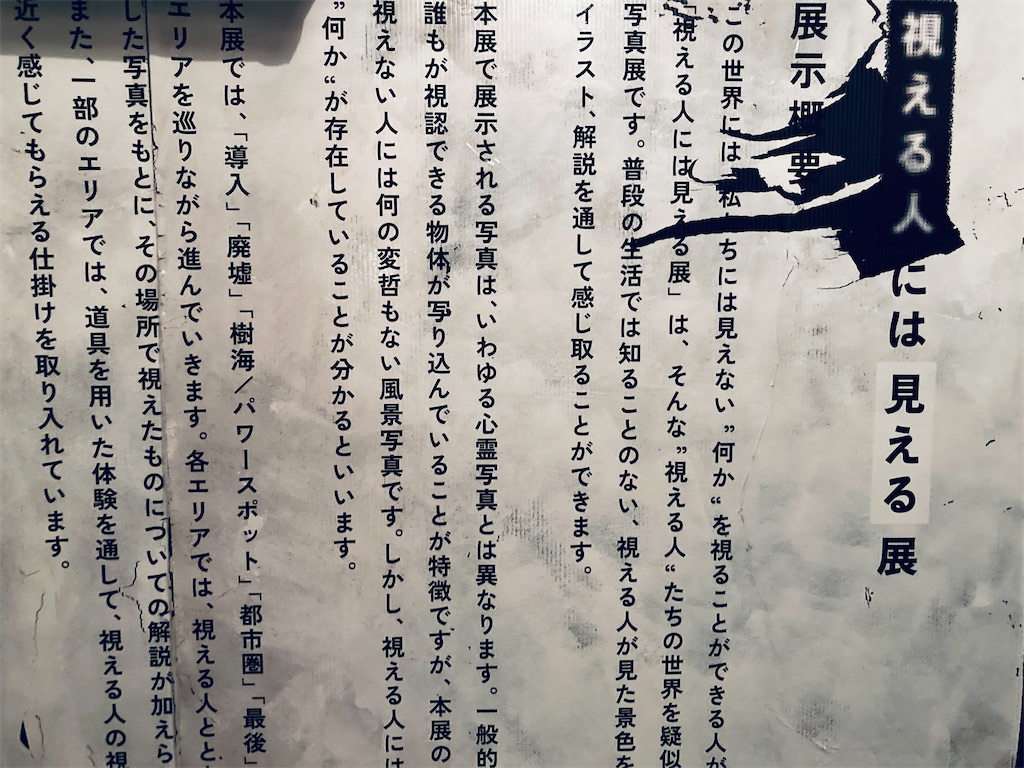 視える人には見える展
展示概要
この世界には、私たちには見えない”何か“を視ることができる人が
「視える人には見える展」は、そんな”視える人“たちの世界を疑似
写真展です。普段の生活では知ることのない、視える人が見た景色を
イラスト、解説を通して感じ取ることができます。
本展で展示される写真は、いわゆる心霊写真とは異なります。一般的
誰もが視認できる物体が写り込んでいることが特徴ですが、本展の
視えない人には何の変哲もない風景写真です。しかし、視える人には
”何か“が存在していることが分かるといいます。
本展では、「導入」「廃墟」「樹海／パワースポット」「都市圏」「最後」
エリアを巡りながら進んでいきます。各エリアでは、視える人とと
した写真をもとに、その場所で視えたものについての解説が加えら
また、一部のエリアでは、道具を用いた体験を通して、視える人の視
近く感じてもらえる仕掛けを取り入れています。